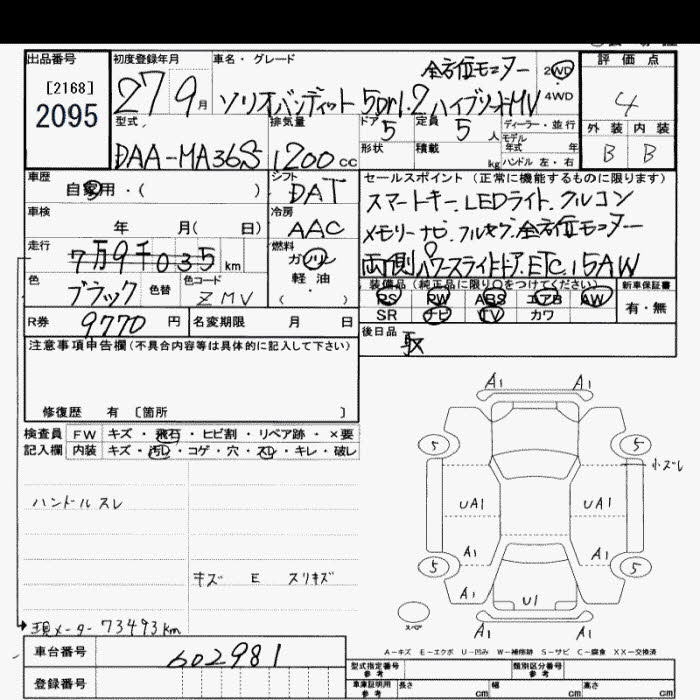 出品番号
[2168]
2095
初度登録年月
27 9月
車名・グレード
全方位モニター
ソリオバンディット 5Dr1.2 ハイブリッドMV
2WD
4WD
評価点
4
外装 内装
B B
型式
DAA-MA36S
排気量
1200cc
ドア
5
定員
5人
形状
積載
kg
ディーラー・並行
モデル
年式 年
ハンドル 左・右
車歴
自家用・( )
シフト
DAT
車検
年 月( 日)
冷房
AAC
走行
7万9千035km
燃料
ガソリン
軽油
( )
色
ブラック
色替
色コード
ZMV
R券
9770円
名変期限 月 日
セールスポイント (正常に機能するものに限ります)
スマートキー.LEDライト.クルコン
メモリーナビ.フルセグ.全方位モニター
両側パワースライドドア.ETC.15AW
装備品 (純正品に限り○をつけてください)
PS PW ABS エアB AW
SR ナビ TV カワ
新車保証書
有・無
後日品
取
注意事項申告欄(不具合内容等は具体的に記入して下さい)
修復歴 有 〔箇所 〕
検査員
記入欄
FW キズ・飛石・ヒビ割・リペア跡・×要
内装 キズ・汚レ・コゲ・穴・スレ・キレ・破レ
ハンドルスレ
キズ E スリキズ
現メーター 73493km
車台番号
602981
登録番号
A1 A1
5 5
小ズレ
UA1 UA1
A1 A1
5 5
A1
U1
スペア
A1 A1
A-キズ E-エクボ U-凹み W-補修跡 S-サビ C-腐食 XX-交換済
型式指定番号
参考
類別区分番号
参考
車庫証明用
参考
長さ cm
幅 cm
高さ cm